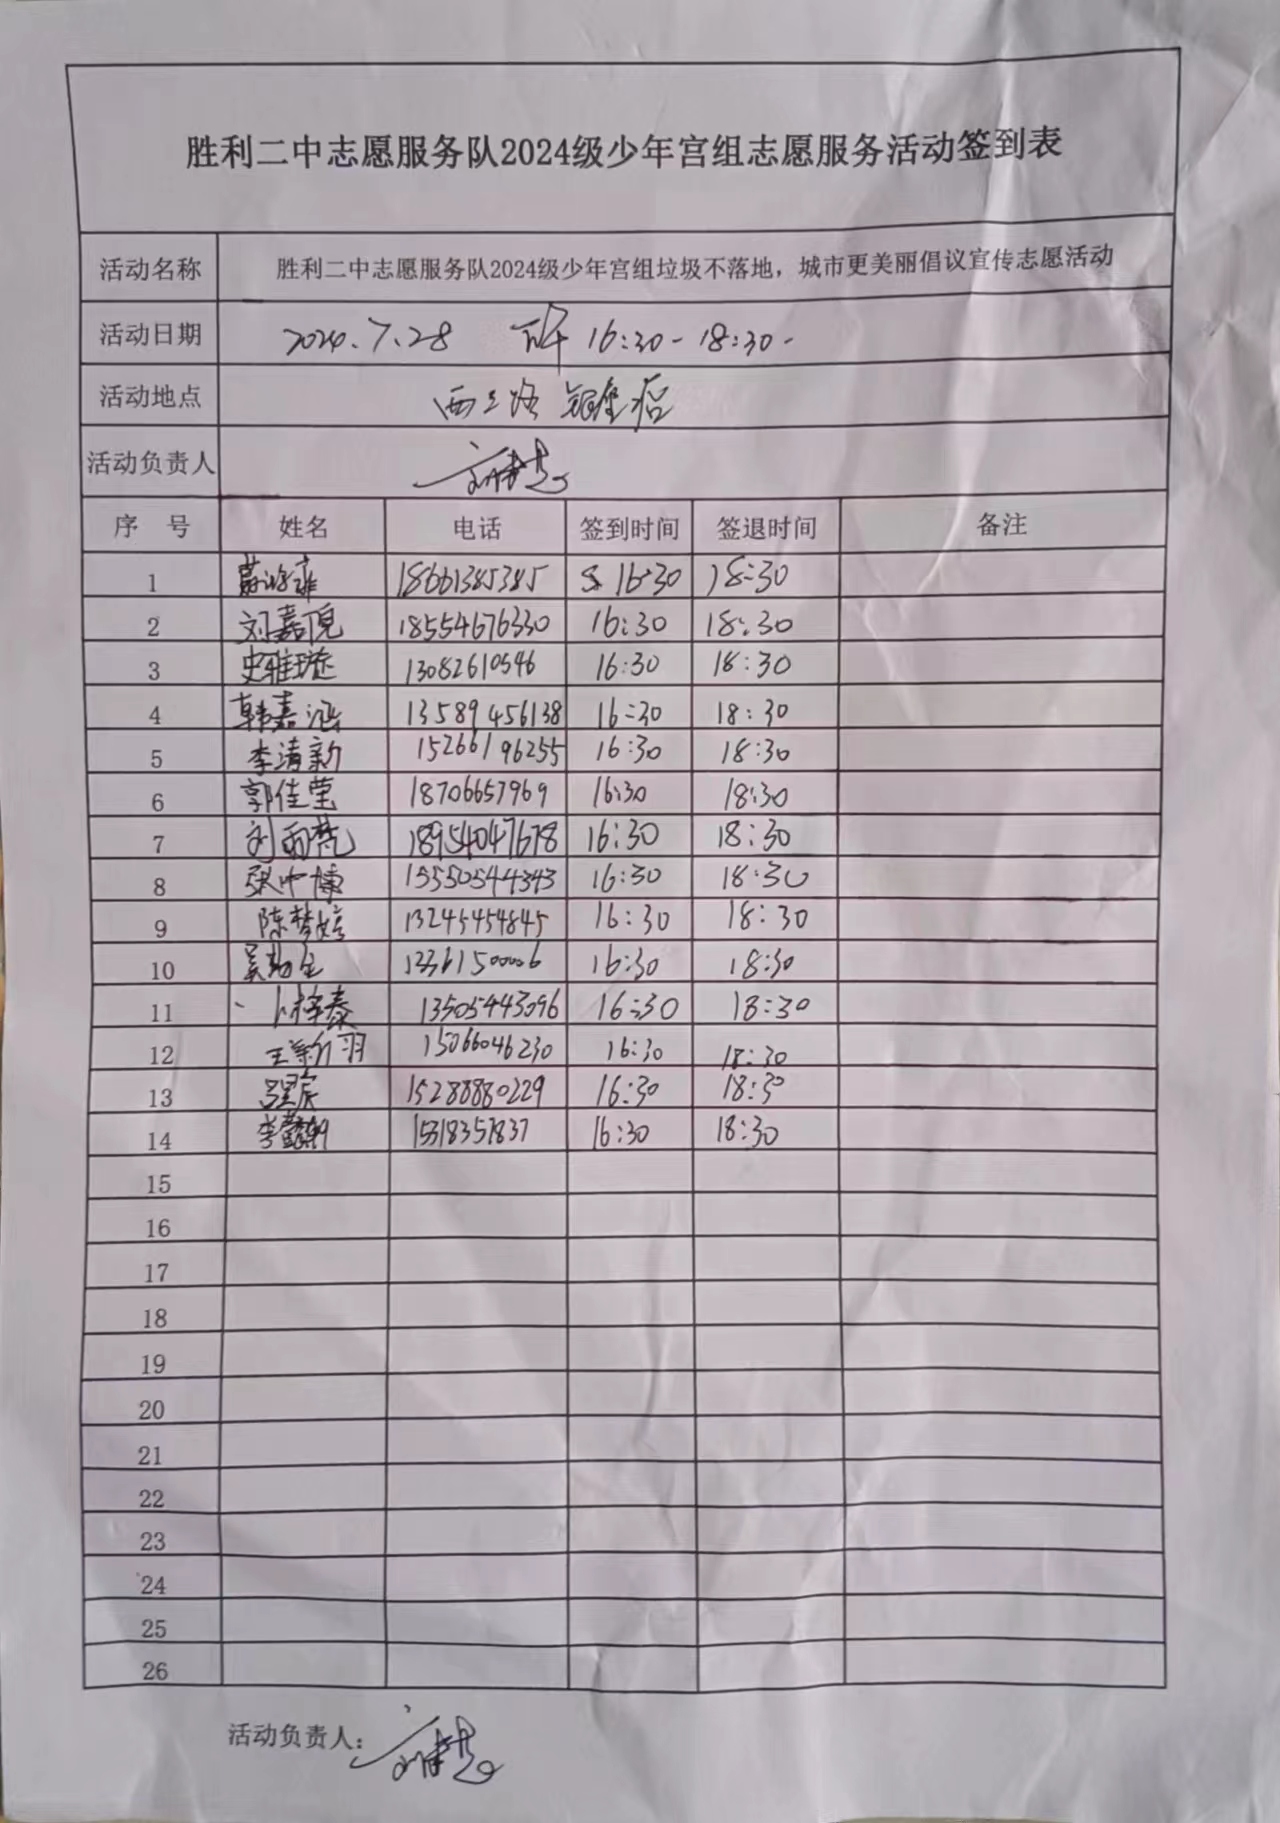 胜利二中志愿服务队2024级少年宫组志愿服务活动签到表
活动名称 胜利二中志愿服务队2024级少年宫组垃圾不落地，城市更美丽倡议宣传志愿活动
活动日期 2024.7.28 下午 16:30-18:30-
活动地点 西三路
活动负责人
序 号 姓名 电话 签到时间 签退时间 备注
1 18661385385 16:30 18:30
2 刘嘉倪 18554676330 16:30 18:30
3 史雅璇 13082610546 16:30 18:30
4 韩嘉涵 13589456138 16:30 18:30
5 李清新 15266196255 16:30 18:30
6 郭佳莹 18706657969 16:30 18:30
7 刘雨梵 18954047678 16:30 18:30
8 张中博 15550544343 16:30 18:30
9 陈梦婷 13245454845 16:30 18:30
10 16:30 18:30
11 卜梓泰 13505443096 16:30 18:30
12 王新羽 15066046230 16:30 18:30
13 15288880229 16:30 18:30
14 李懿轩 15318357837 16:30 18:30
15
16
17
18
19
20
21
22
23
24
25
26
活动负责人：